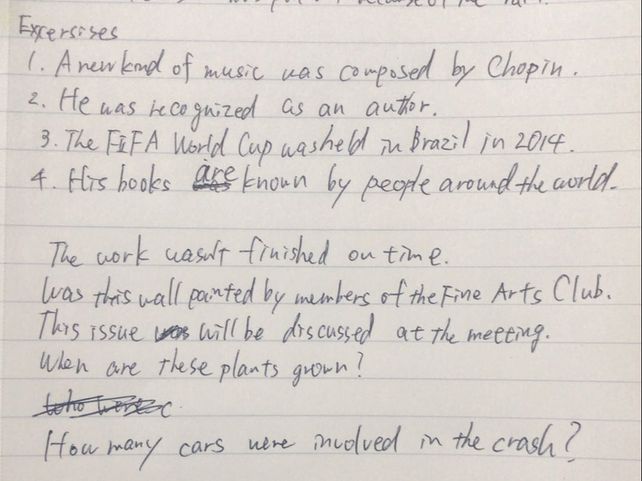 Excersises
1. A new kind of music was composed by Chopin.
2. He was recognized as an author.
3. The FIFA World Cup was held in Brazil in 2014.
4. His books are known by people around the world.
The work wasn't finished on time.
Was this wall painted by members of the Fine Arts Club.
This issue will be discussed at the meeting.
When are these plants grown?
How many cars were involved in the crash?